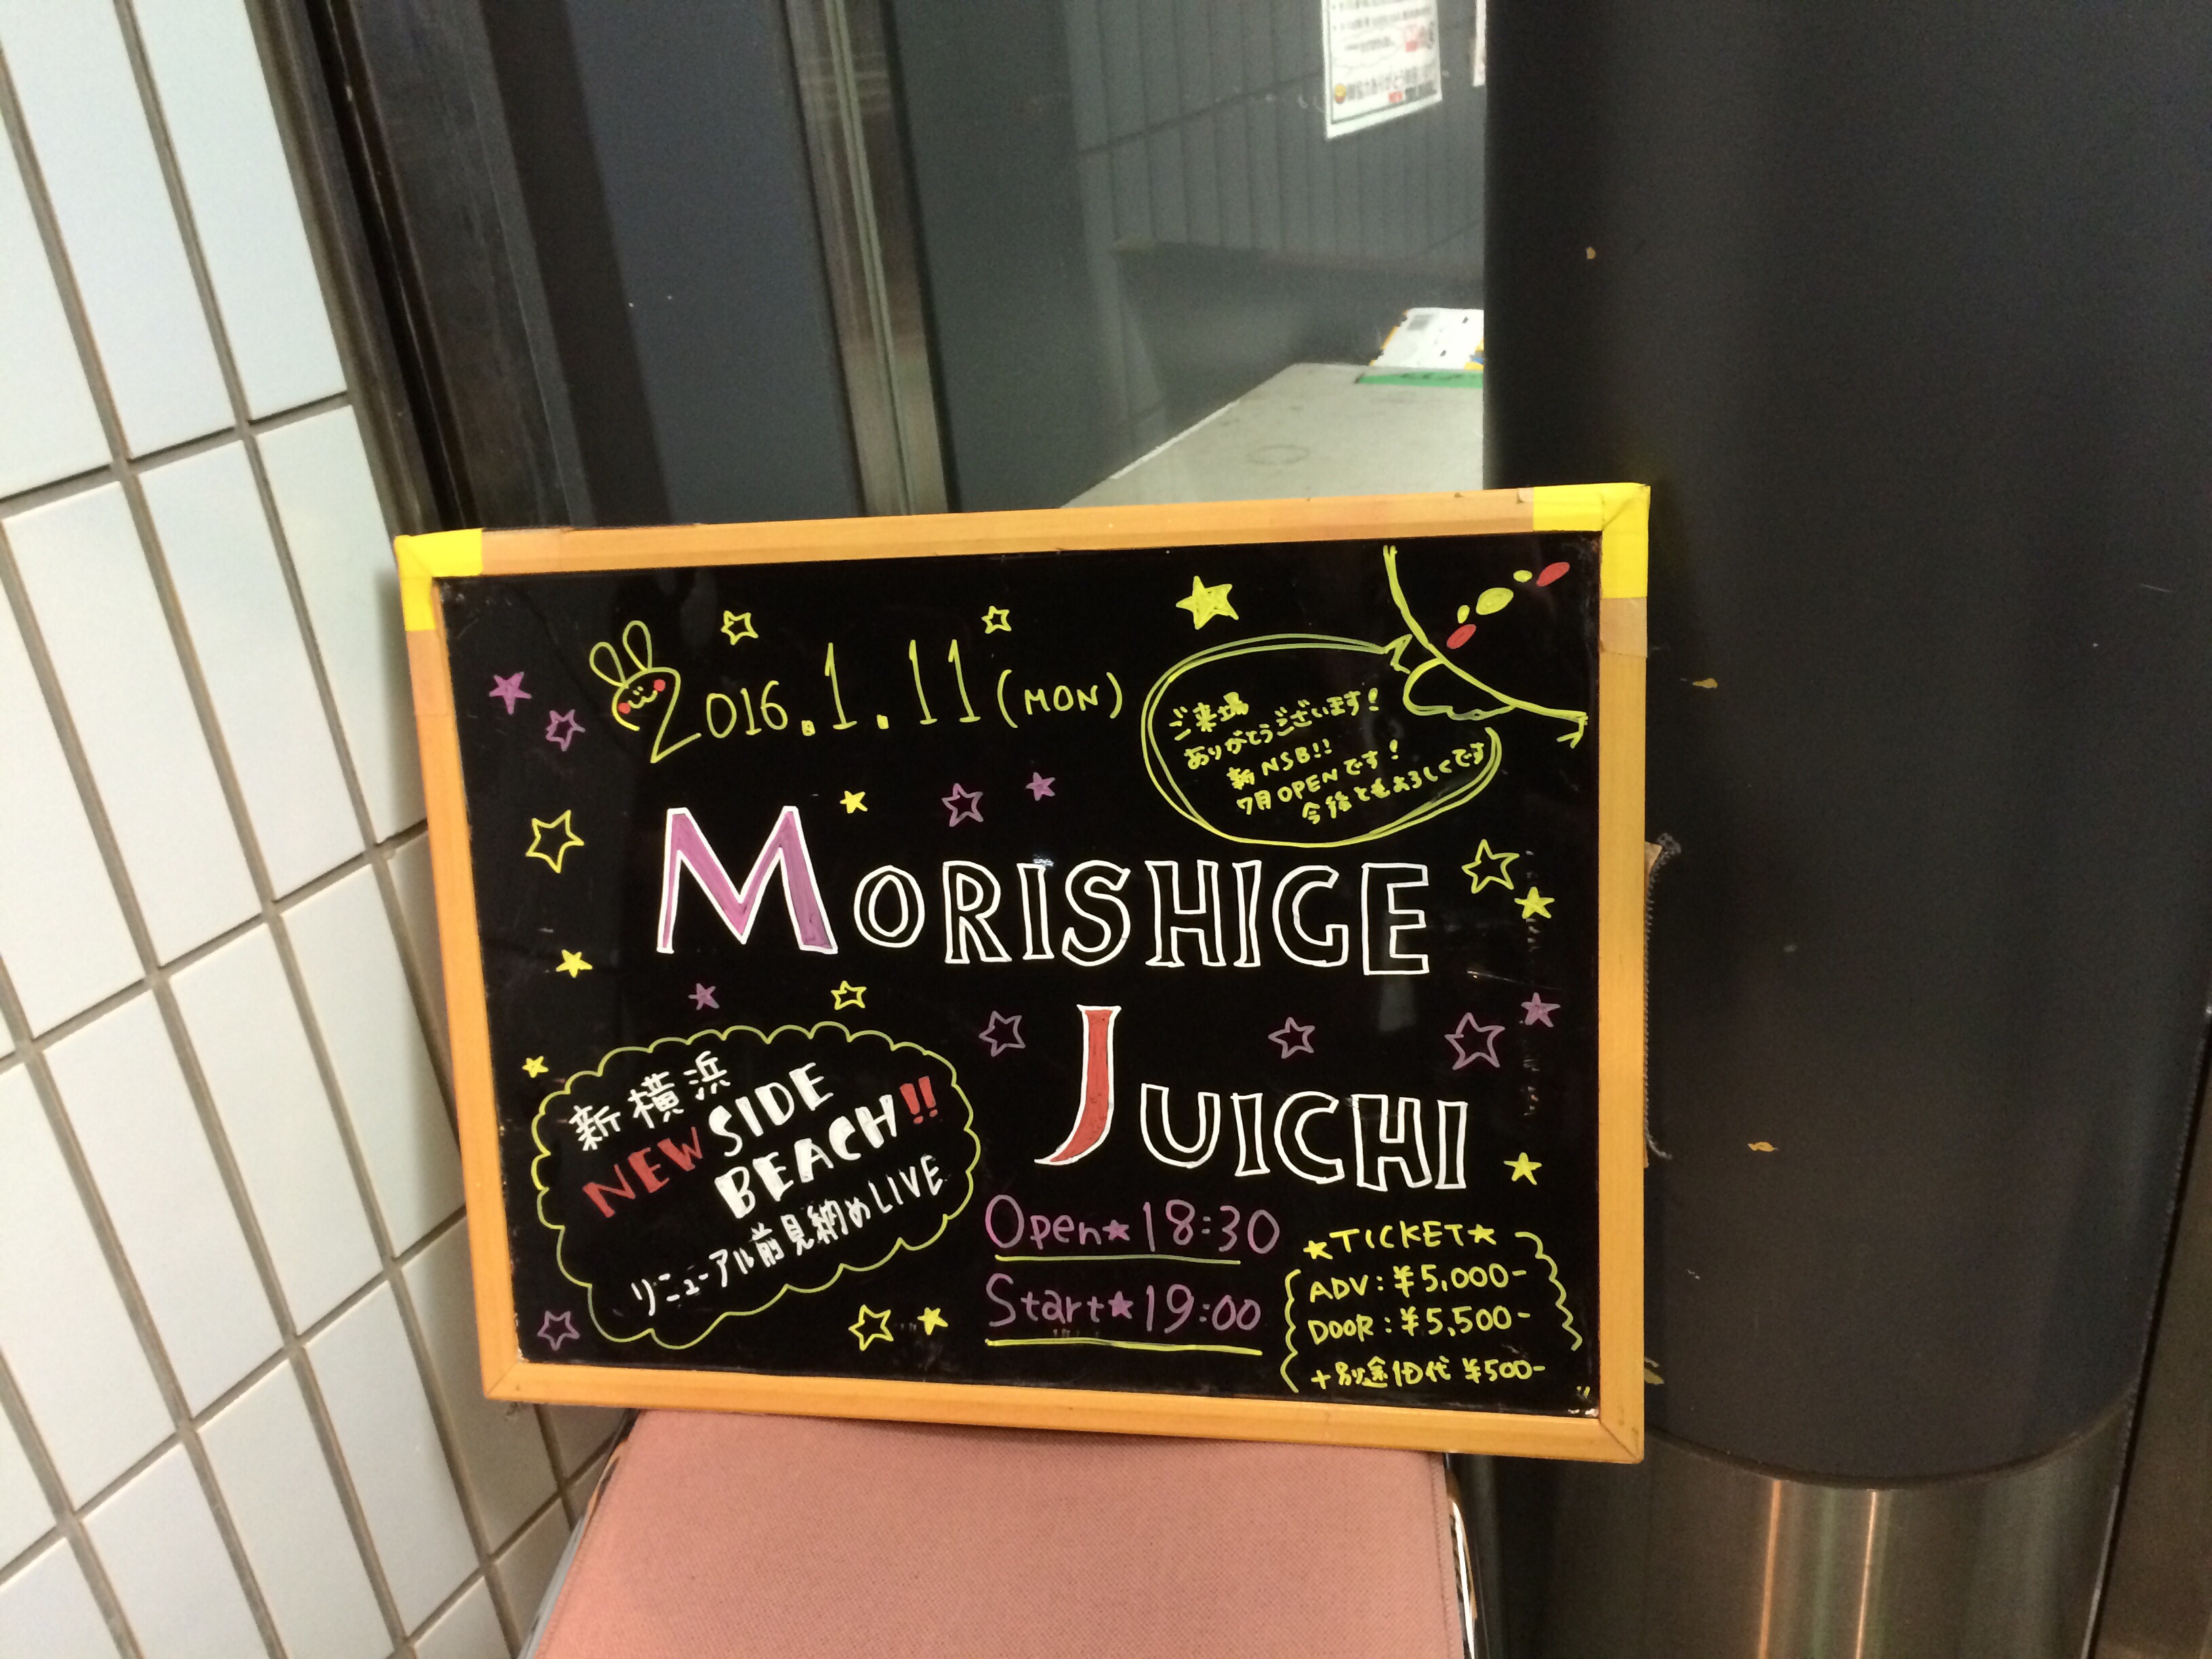 2016.1.11(MON)
ご来場
ありがとうございます!
新NSB!!
7月OPENです!
今後ともよろしくです
MORISHIGE
JUICHI
新横浜
NEW SIDE
BEACH!!
リニューアル前見納めLIVE
Open★18:30
Start★19:00
★TICKET★
ADV:¥5,000-
DOOR:¥5,500-
+別途D代 ¥500-